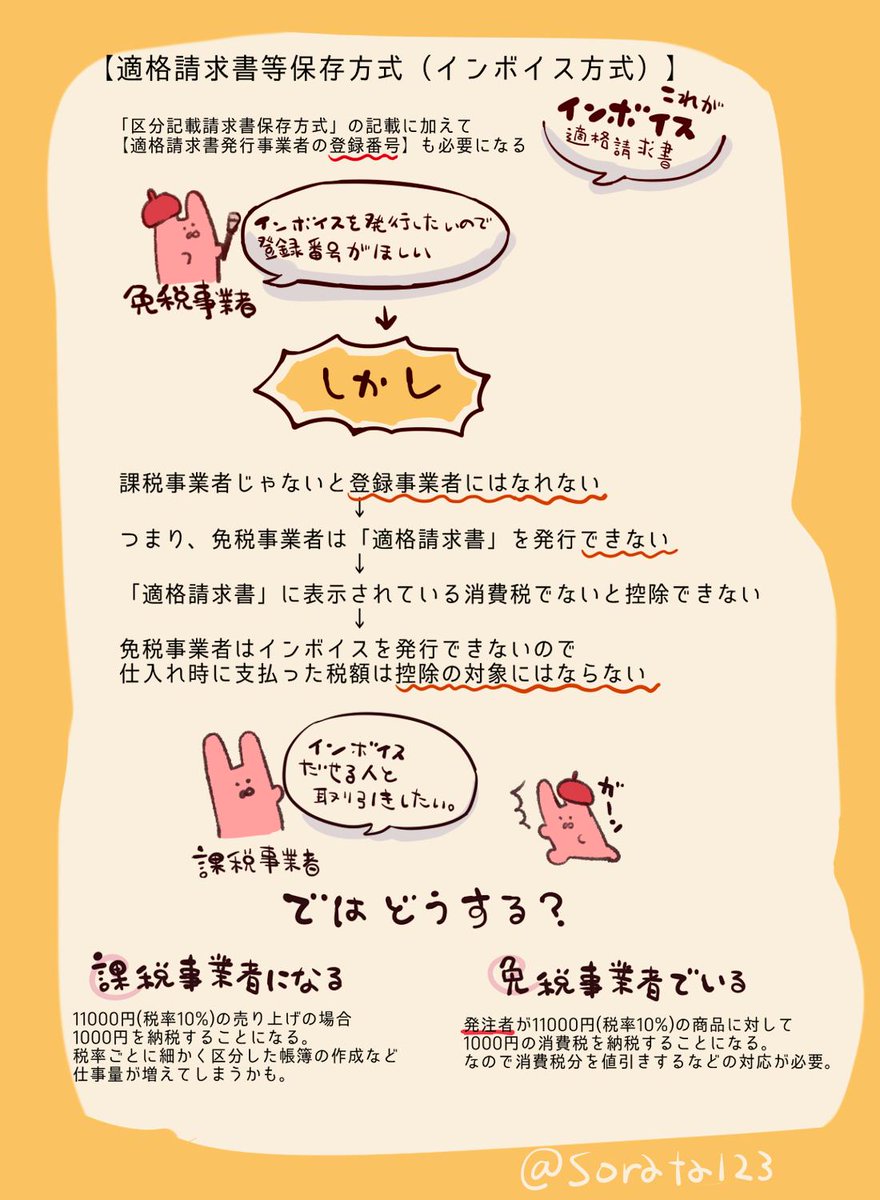 【適格請求書等保存方式（インボイス方式）】
「区分記載請求書保存方式」の記載に加えて
【適格請求書発行事業者の登録番号】も必要になる
これが
インボイス
適格請求書
インボイスを発行したいので
登録番号がほしい
免税事業者
↓
しかし
課税事業者じゃないと登録事業者にはなれない
↓
つまり、免税事業者は「適格請求書」を発行できない
↓
「適格請求書」に表示されている消費税でないと控除できない
↓
免税事業者はインボイスを発行できないので
仕入れ時に支払った税額は控除の対象にはならない
インボイス
だせる人と
取り引きしたい。
課税事業者
ガーン
ではどうする?
課税事業者になる
11000円(税率10%)の売り上げの場合
1000円を納税することになる。
税率ごとに細かく区分した帳簿の作成など
仕事量が増えてしまうかも。
免税事業者でいる
発注者が11000円(税率10%)の商品に対して
1000円の消費税を納税することになる。
なので消費税分を値引きするなどの対応が必要。
@Sorata123